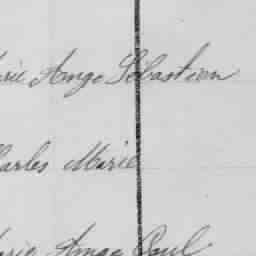 arie Ange Sébastien
harles Marie
arie Ange Paul